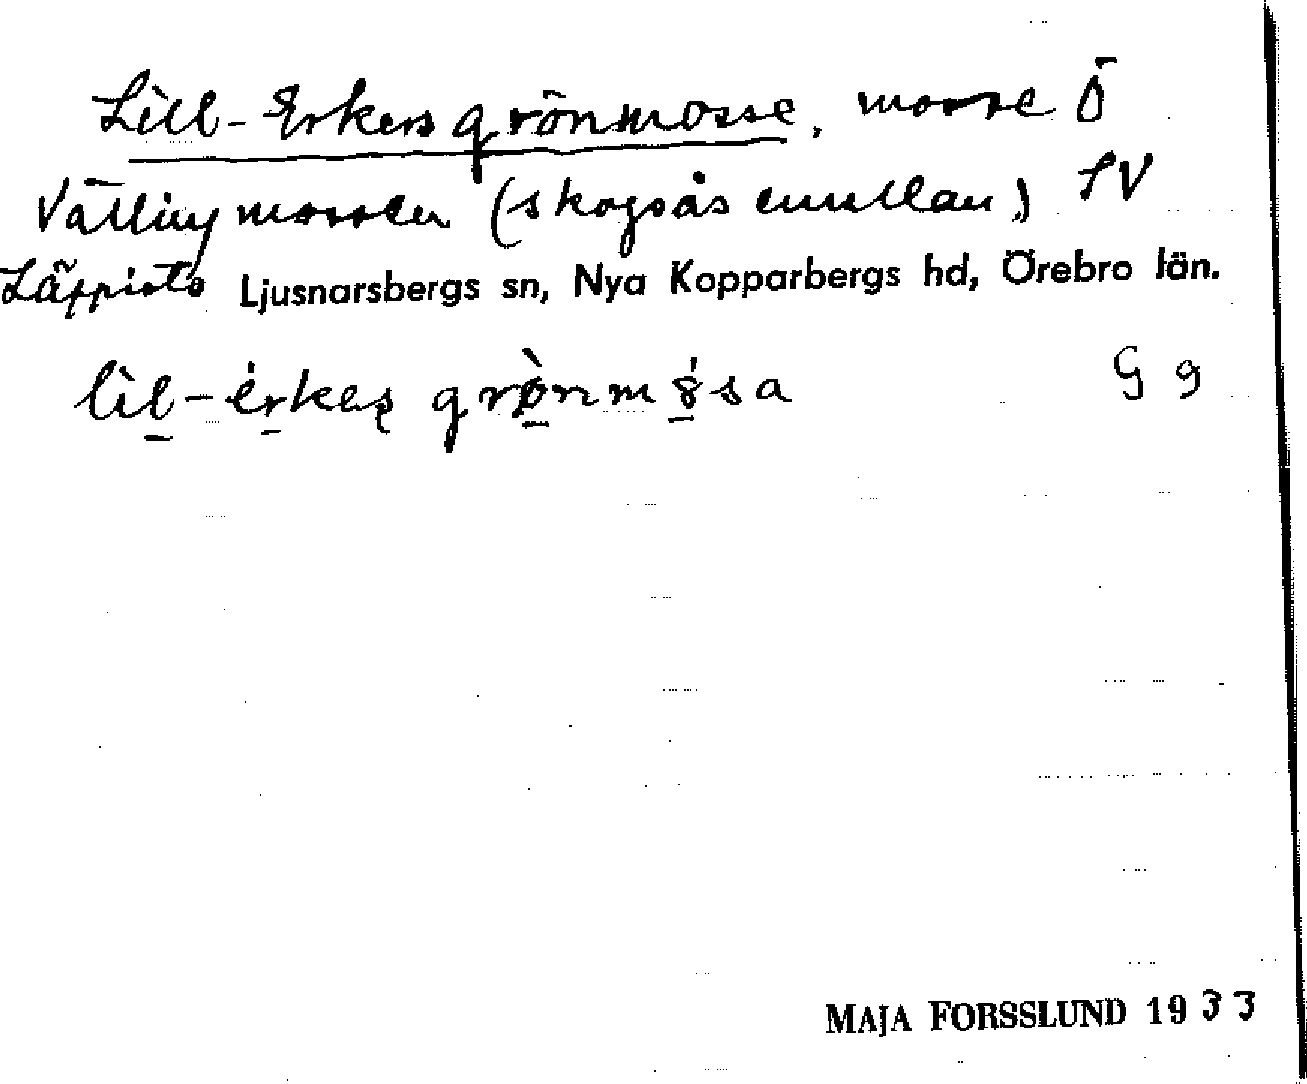 Lill-Erkers grönmosse, mosse Ö
Vällingmossen (skogsås emellan) SV
Läppisto Ljusnarsbergs sn, Nya Kopparbergs hd, Örebro län.
lìl-érkes grònmósa G 9
MAJA FORSSLUND 1933